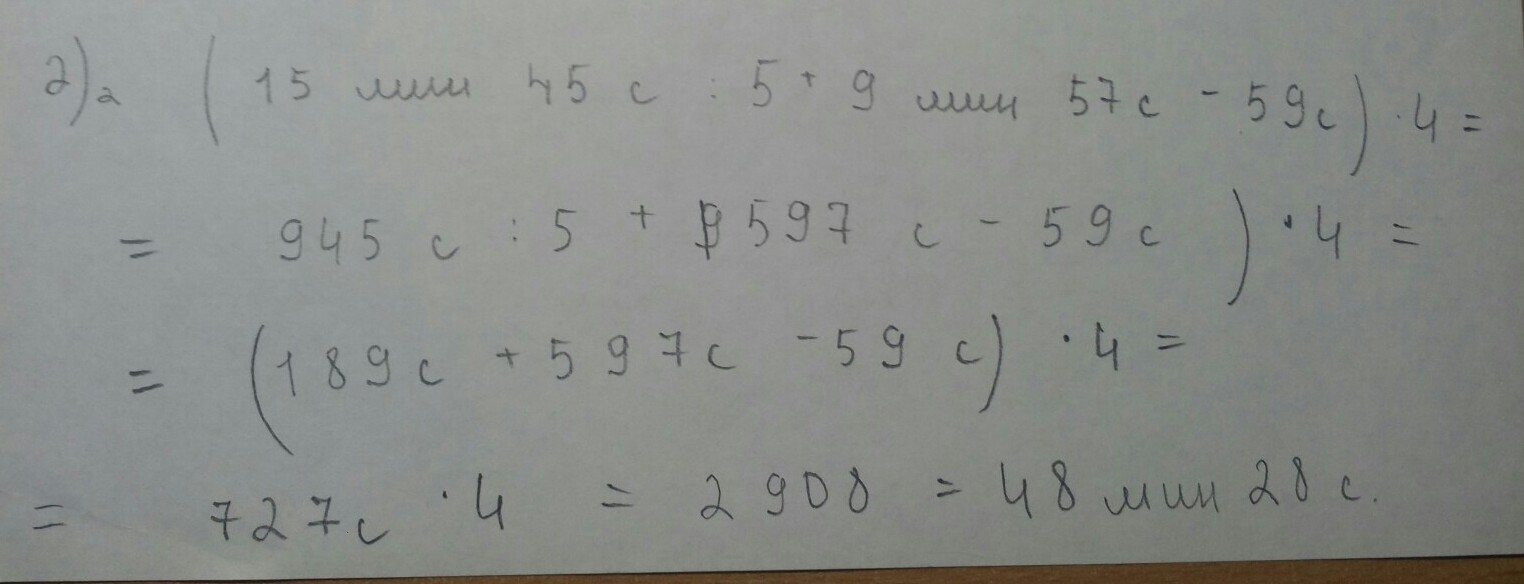 2)2 (15 мин 45 с : 5 + 9 мин 57с - 59с) · 4 =
= 945 с : 5 + 597 с - 59с) · 4 =
= (189с + 597с - 59 с) · 4 =
= 727с · 4 = 2908 = 48 мин 28 с.